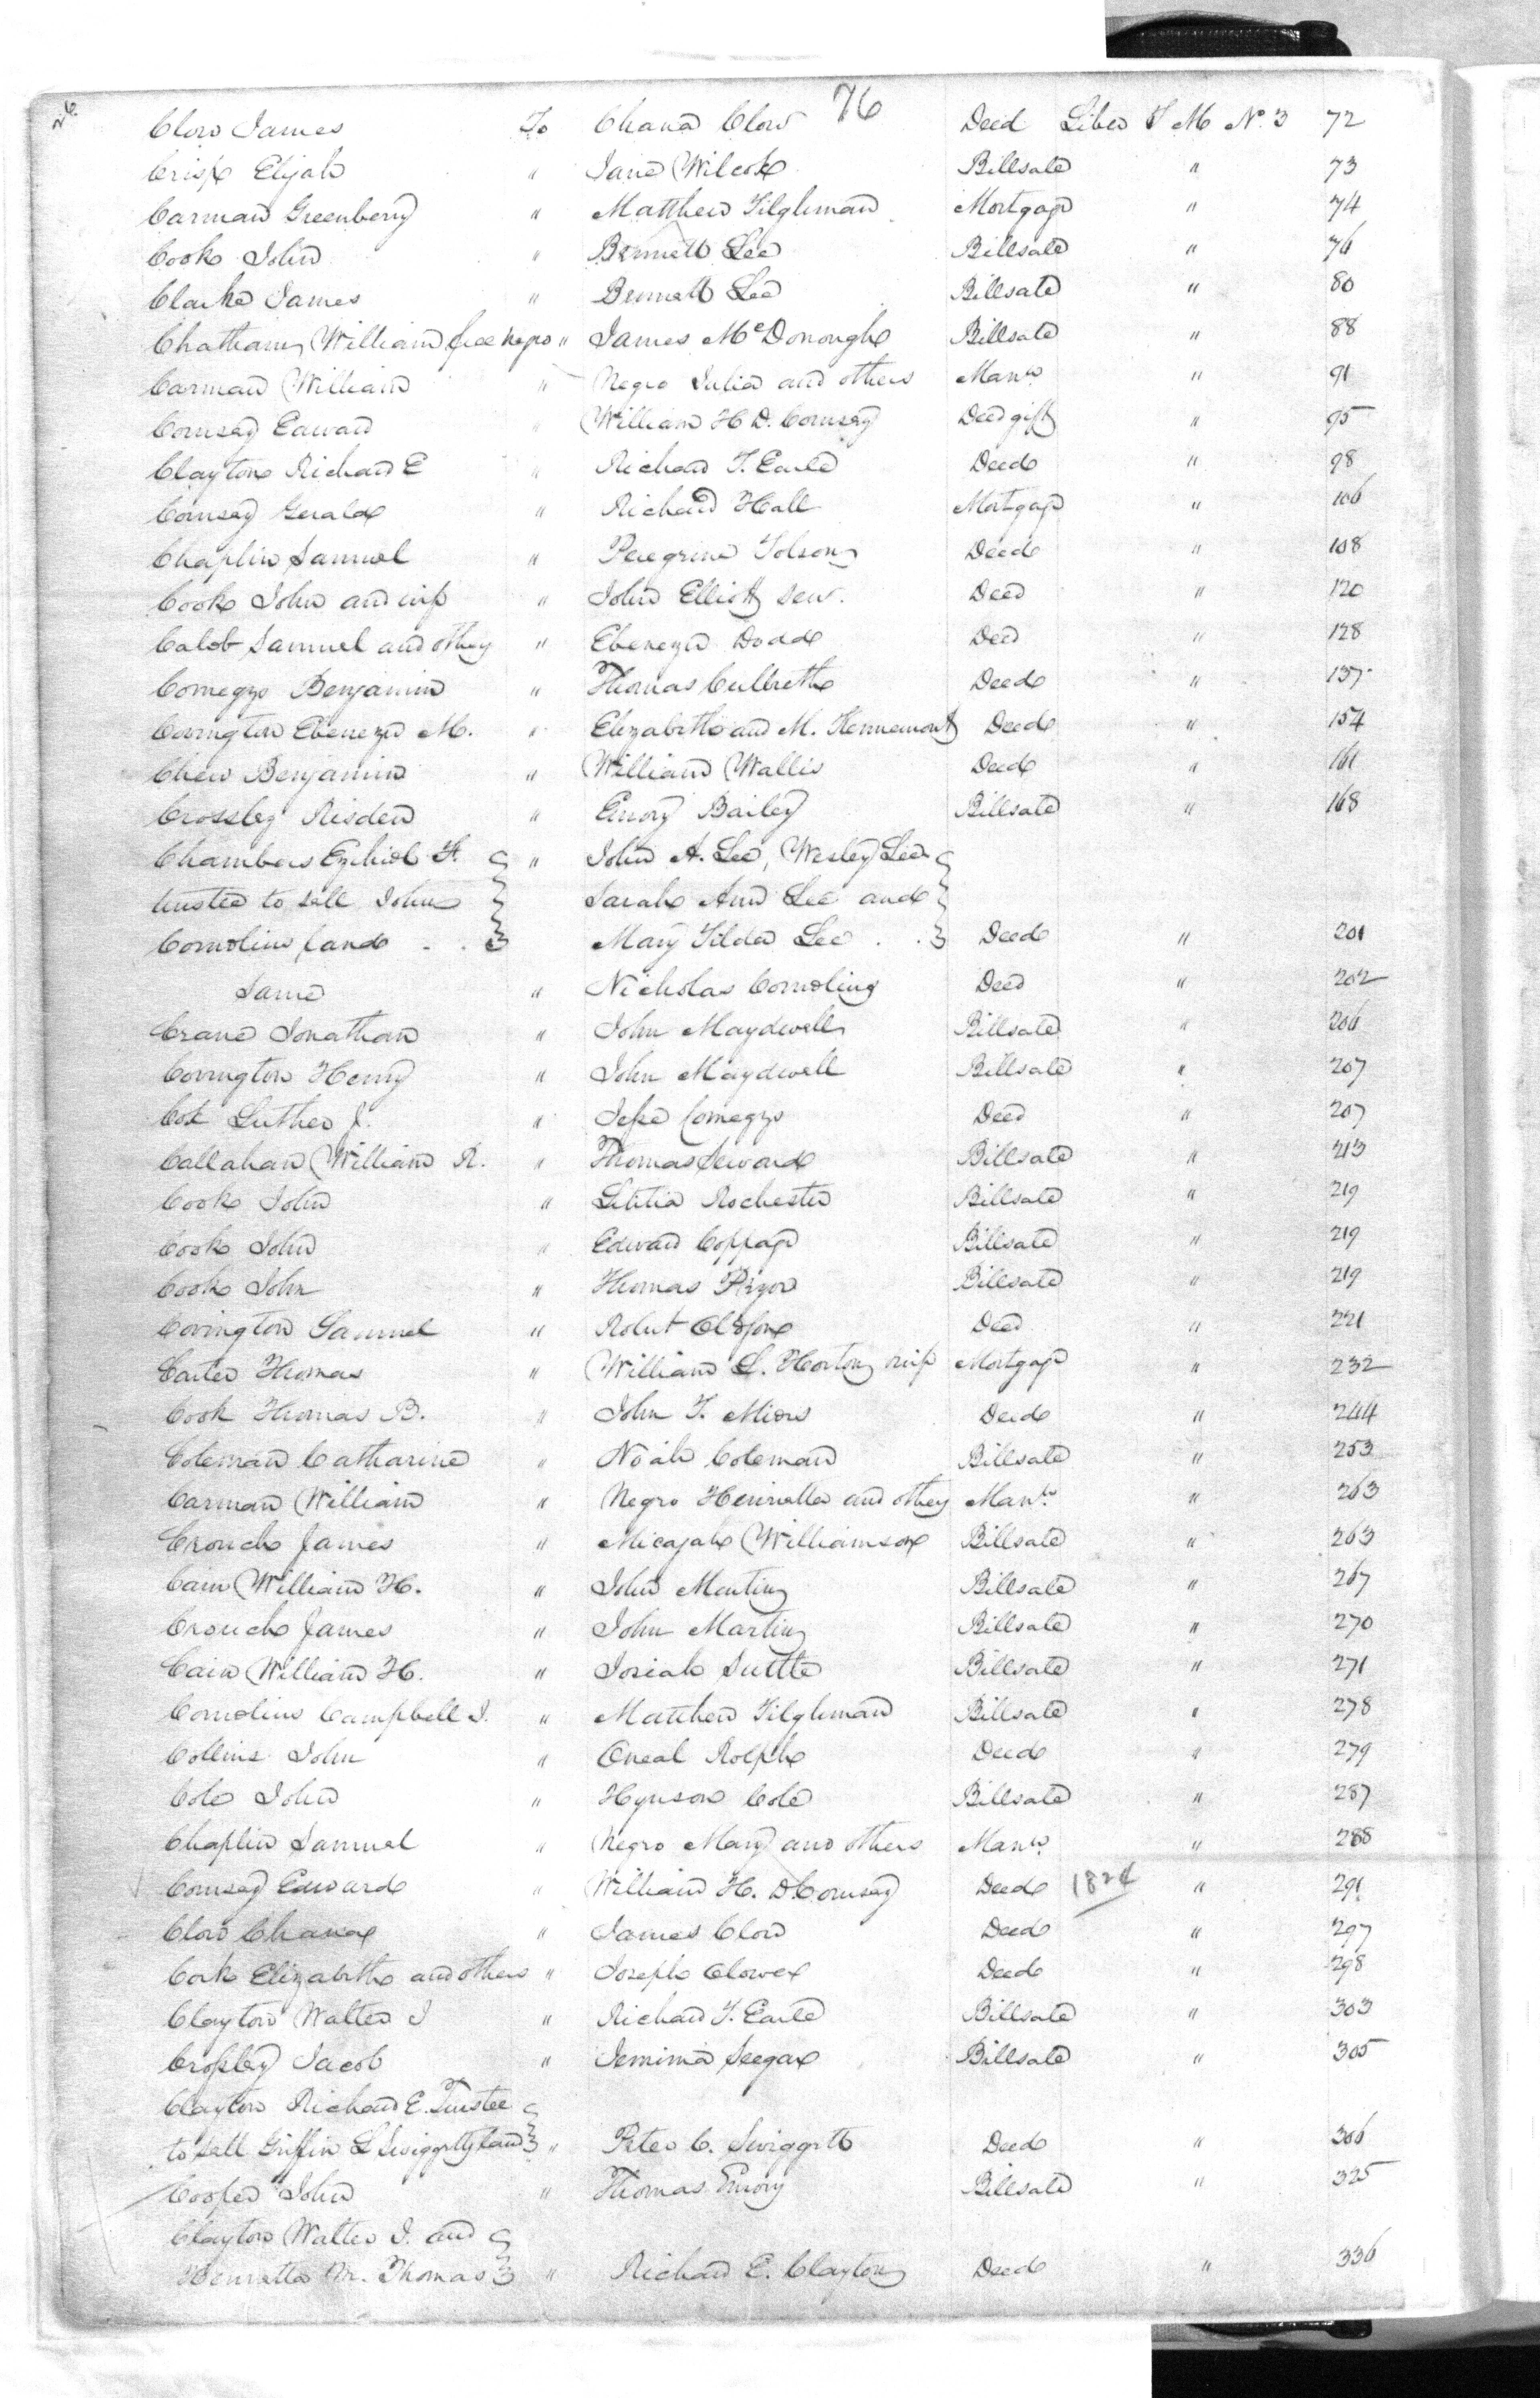 76
Clow James To Chana Clow Deed Liber T M No. 3 72
Crisp Elijah " Jane Wilcox Billsale " 73
Carman Greenberry " Matthew Tilghman Mortgage " 74
Cook John " Bennett Lee Billsale " 76
Clarke James " Bennett Lee Billsale " 80
Chatham William free negro " James McDonough Billsale " 88
Carman William " Negro Julia and others Mann. " 91
Comsey Edward " William H. D. Comsey Deed gift " 95
Clayton Richard E " Richard T. Earle Deed " 98
Comsey Gerald " Richard Hall Mortgage " 106
Chaplin Samuel " Peregrine Tolson Deed " 108
Cook John and wife " John Elliott Senr. Deed " 120
Calob Samuel and others " Ebenezer Dodd Deed " 128
Comegys Benjamin " Thomas Culbreth Deed " 137
Covington Ebenezer M. " Elizabeth and M. Hennemont Deed " 154
Chew Benjamin " William Wallis Deed " 161
Crossley Risden " Emory Bailey Billsale " 168
Chambers Ezekiel F. " John A. Lee, Wesley Lee
trustee to sell John Sarah Ann Lee and
Cornelius land Mary Tilda Lee Deed " 201
Same " Nicholas Cornelius Deed " 202
Crane Jonathan " John Maydwell Billsale " 206
Covington Henry " John Maydwell Billsale " 207
Cox Luther J. " Jesse Comegys Deed " 207
Callahan William R. " Thomas Seward Billsale " 213
Cook John " Letitia Rochester Billsale " 219
Cook John " Edward Coppage Billsale " 219
Cook John " Thomas Pryor Billsale " 219
Covington Samuel " Robert Oldson Deed " 221
Carter Thomas " William L. Horton wife Mortgage " 232
Cook Thomas B. " John T. Miers Deed " 244
Coleman Catharine " Noah Coleman Billsale " 253
Carman William " Negro Henrietta and others Mann. " 263
Crouch James " Micajah Williamson Billsale " 263
Cain William H. " John Benting Billsale " 267
Crouch James " John Martin Billsale " 270
Cain William H. " Josiah Suttle Billsale " 271
Cornelius Campbell J. " Matthew Tilghman Billsale " 278
Collins John " Oneal Rolph Deed " 279
Cole John " Hynson Cole Billsale " 287
Chaplin Samuel " Negro Mary and others Mann. " 288
Comsey Edward " William H. D. Comsey Deed 1824 " 291
Clow Chana " James Clow Deed " 297
Cork Elizabeth and others " Joseph Clowes Deed " 298
Clayton Walter J " Richard T. Earle Billsale " 303
Crossley Jacob " Jemima Seegar Billsale " 305
Clayton Richard E. Trustee
to sell Griffin L Swiggetts land " Peter C. Swiggett Deed " 306
Cooper John " Thomas Emory Billsale " 325
Clayton Walter J. and
Henretta M. Thomas " Richard E. Clayton Deed " 336